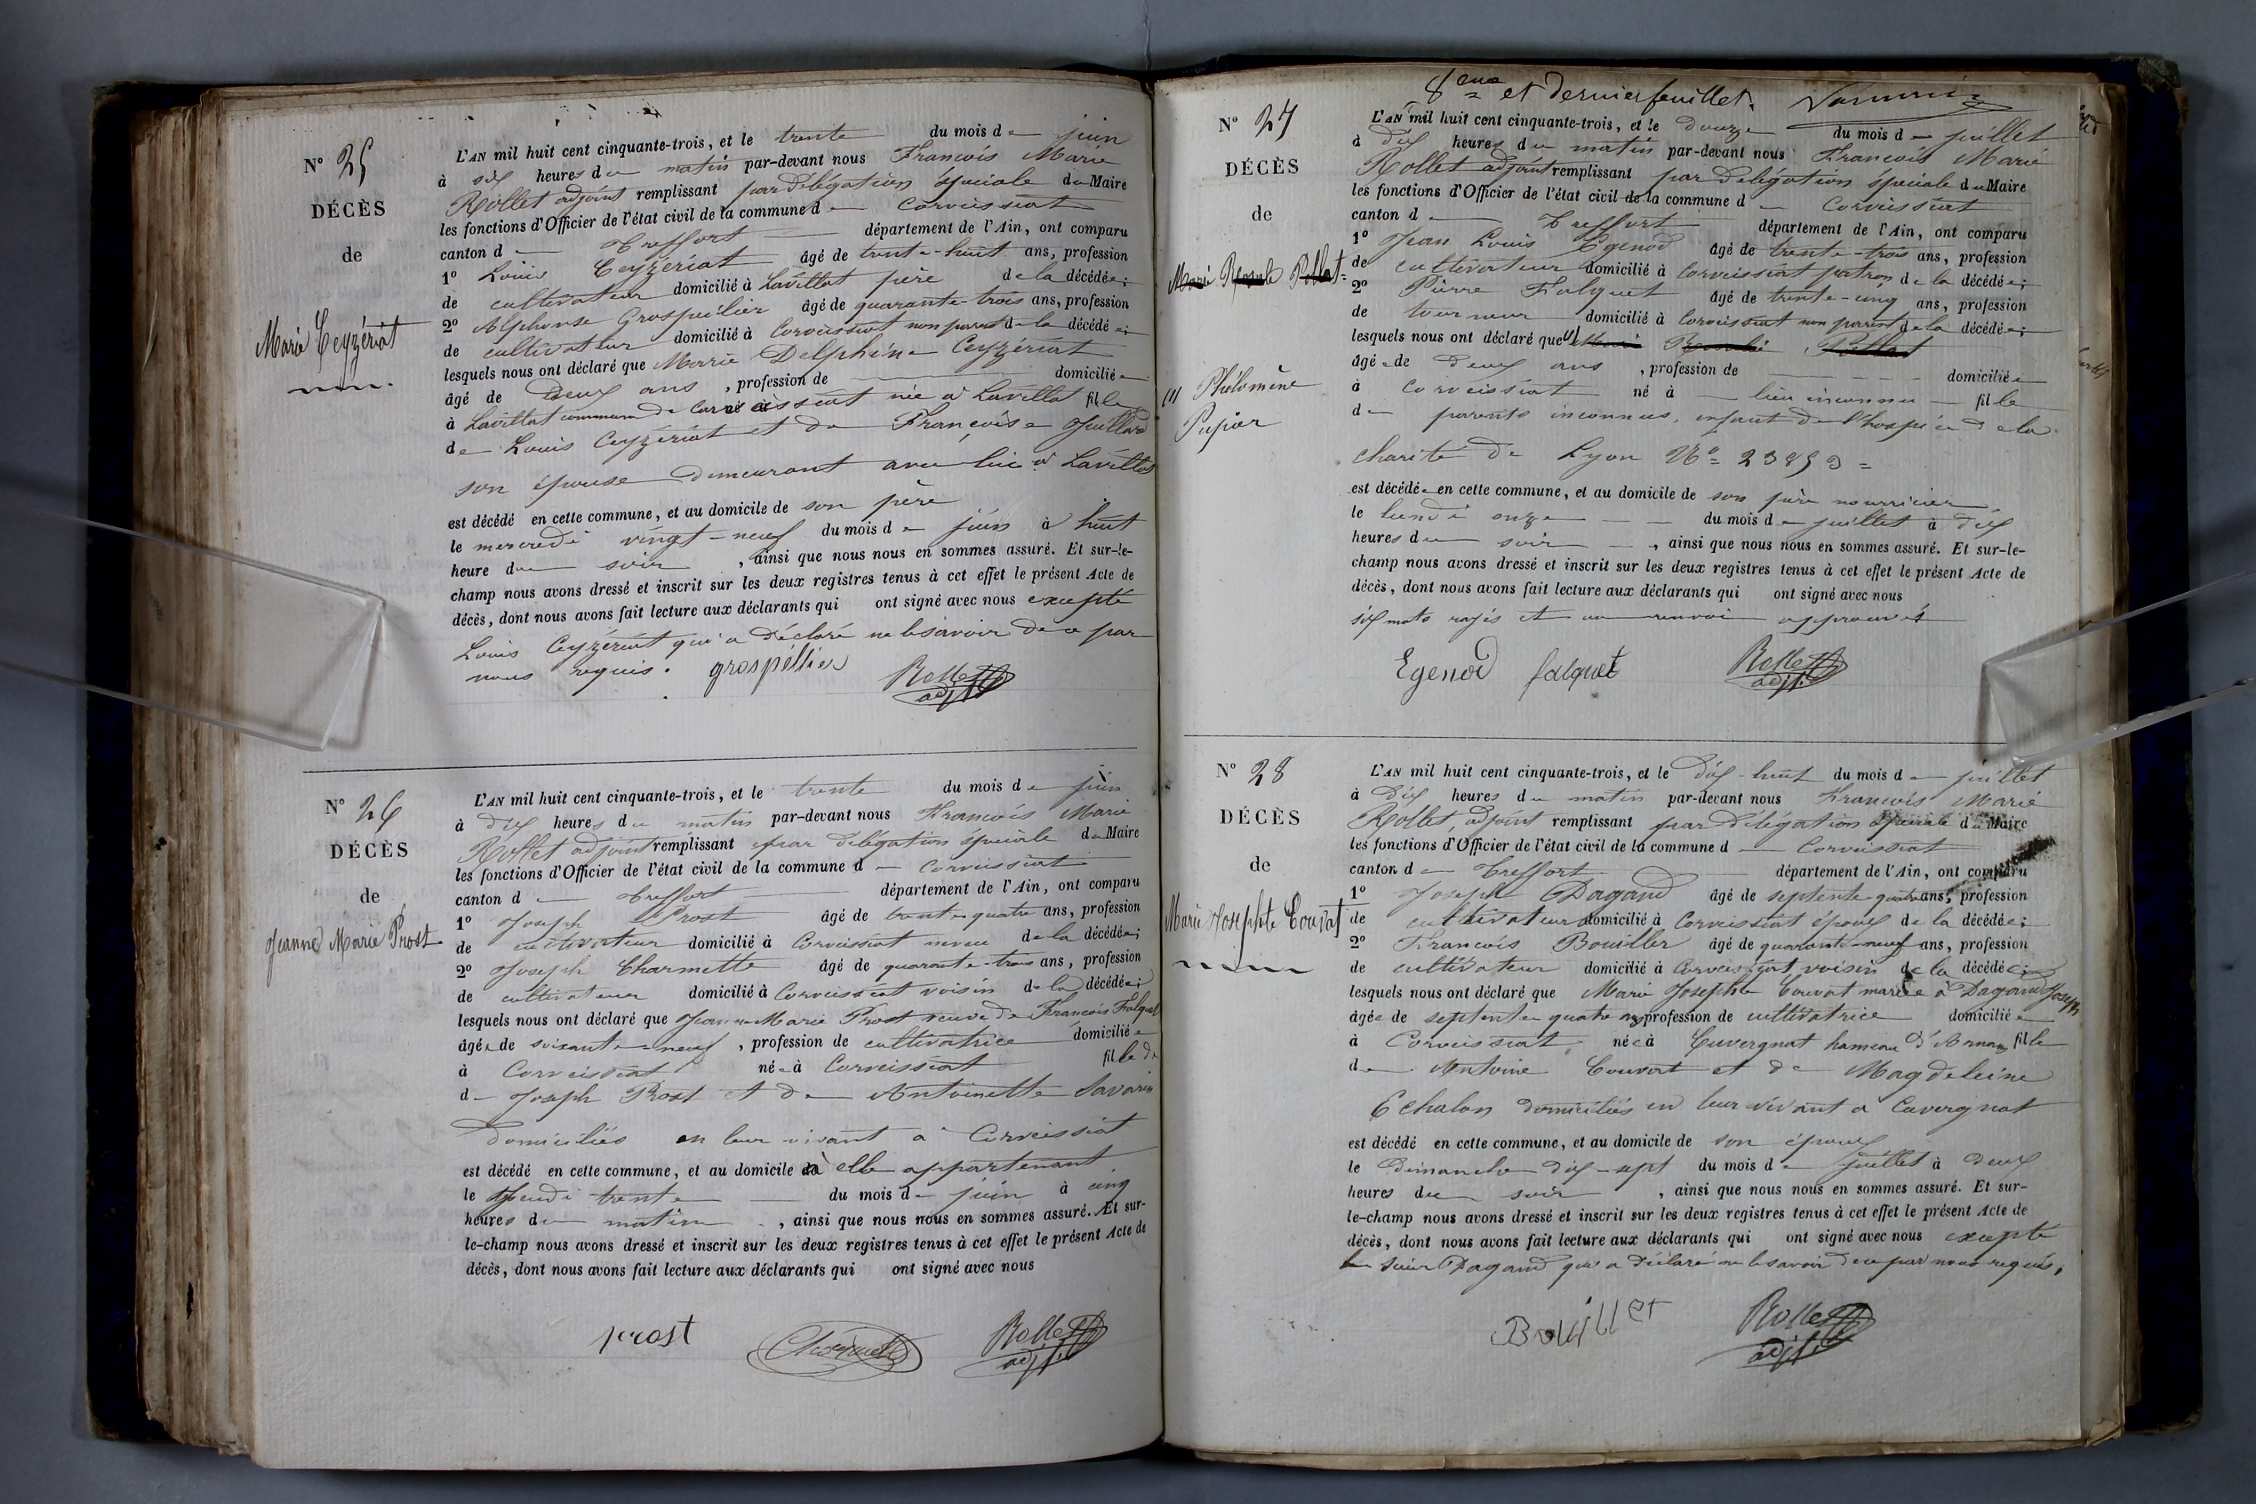 N° 25
DÉCÈS
de
Marie Ceyzériat
L'AN mil huit cent cinquante-trois, et le trente du mois de juin
à six heures du matin par-devant nous François Marie
Rollet adjoint remplissant par délégation spéciale du Maire
les fonctions d'Officier de l'état civil de la commune de Corveissiat
canton de Treffort département de l'Ain, ont comparu
1° Louis Ceyzériat âgé de trente-huit ans, profession
de cultivateur domicilié à Lavillat père de la décédée;
2° Alphonse Grospélier âgé de quarante-trois ans, profession
de cultivateur domicilié à Corveissiat non parent de la décédée;
lesquels nous ont déclaré que Marie Delphine Ceyzériat
âgé de deux ans, profession de domiciliée
à Lavillat commune de Corveissiat née à Lavillat fille
de Louis Ceyzériat et de Françoise Juillard
son épouse demeurant avec lui à Lavillat
est décédé en cette commune, et au domicile de son père
le mercredi vingt-neuf du mois de juin à huit
heure du soir, ainsi que nous nous en sommes assuré. Et sur-le-
champ nous avons dressé et inscrit sur les deux registres tenus à cet effet le présent Acte de
décès, dont nous avons fait lecture aux déclarants qui ont signé avec nous excepté
Louis Ceyzériat qui a déclaré ne le savoir de ce par
nous requis. grospéllier Rollet adjt
N° 26
DÉCÈS
de
Jeanne Marie Prost
L'AN mil huit cent cinquante-trois, et le trente du mois de juin
à dix heures du matin par-devant nous François Marie
Rollet adjoint remplissant par délégation spéciale du Maire
les fonctions d'Officier de l'état civil de la commune de Corveissiat
canton de Treffort département de l'Ain, ont comparu
1° Joseph Prost âgé de trente quatre ans, profession
de cultivateur domicilié à Corveissiat neveu de la décédée;
2° Joseph Charmette âgé de quarante-trois ans, profession
de cultivateur domicilié à Corveissiat voisin de la décédée;
lesquels nous ont déclaré que Jeanne Marie Prost veuve de François Falquet
âgée de soixante-neuf, profession de cultivatrice domiciliée
à Corveissiat née à Corveissiat fille de
de Joseph Prost et de Antoinette Savarin
domiciliés en leur vivant à Corveissiat
est décédé en cette commune, et au domicile à elle appartenant
le Jeudi trente du mois de juin à cinq
heures du matin, ainsi que nous nous en sommes assuré. Et sur-
le-champ nous avons dressé et inscrit sur les deux registres tenus à cet effet le présent Acte de
décès, dont nous avons fait lecture aux déclarants qui ont signé avec nous
prost Charmette Rollet adjt
8eme et dernier feuillet.
N° 27
DÉCÈS
de
Marie Rosalie Pollet
(1) Philomène
Papier
L'AN mil huit cent cinquante-trois, et le douze du mois de juillet
à dix heures du matin par-devant nous François Marie
Rollet adjoint remplissant par délégation spéciale du Maire
les fonctions d'Officier de l'état civil de la commune de Corveissiat
canton de Treffort département de l'Ain, ont comparu
1° Jean Louis Egenod âgé de trente-trois ans, profession
de cultivateur domicilié à Corveissiat patron de la décédée;
2° Pierre Falquet âgé de trente-cinq ans, profession
de tourneur domicilié à Corveissiat non parent de la décédée;
lesquels nous ont déclaré que (1) Marie Rosalie Pollet
âgée de deux ans, profession de domiciliée
à Corveissiat né à lieu inconnu fille
de parents inconnus, enfant de l'hospice de la
charité de Lyon N° 23853
est décédée en cette commune, et au domicile de son père nourricier
le lundi onze du mois de juillet à dix
heures du soir, ainsi que nous nous en sommes assuré. Et sur-le-
champ nous avons dressé et inscrit sur les deux registres tenus à cet effet le présent Acte de
décès, dont nous avons fait lecture aux déclarants qui ont signé avec nous
six mots rayés et un renvoi approuvés
Egenod falquet Rollet adjt
N° 28
DÉCÈS
de
Marie Josephte Couvat
L'AN mil huit cent cinquante-trois, et le dix-huit du mois de juillet
à dix heures du matin par-devant nous François Marie
Rollet, adjoint remplissant par délégation spéciale du Maire
les fonctions d'Officier de l'état civil de la commune de Corveissiat
canton de Treffort département de l'Ain, ont comparu
1° Joseph Dagand âgé de septente quatre ans, profession
de cultivateur domicilié à Corveissiat époux de la décédée;
2° François Bouiller âgé de quarante-neuf ans, profession
de cultivateur domicilié à Corveissiat voisin de la décédée;
lesquels nous ont déclaré que Marie Josephte Couvat mariée à Dagand Joseph
âgée de septente quatre ans profession de cultivatrice domiciliée
à Corveissiat, née à Cuvergnat hameau d'Arnans fille
de Antoine Couvat et de Magdeleine
Echalon domiciliés en leur vivant à Cuvergnat
est décédé en cette commune, et au domicile de son époux
le dimanche dix-sept du mois de juillet à deux
heures du soir, ainsi que nous nous en sommes assuré. Et sur-
le-champ nous avons dressé et inscrit sur les deux registres tenus à cet effet le présent Acte de
décès, dont nous avons fait lecture aux déclarants qui ont signé avec nous excepté
le sieur Dagand qui a déclaré ne le savoir de ce par nous requis,
Bouiller Rollet adjt